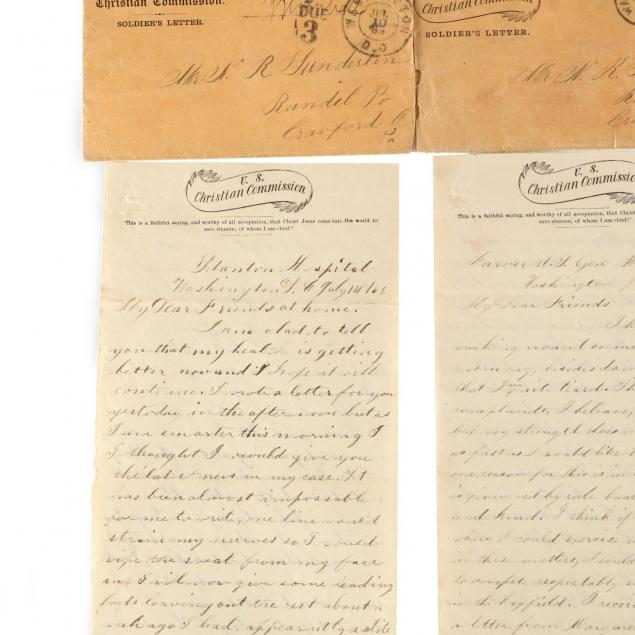 Christian Commission.
SOLDIER'S LETTER.
3
WASHINGTON
D.C.
Mr N. R. Sunderlin
Randel Po
Crawford Co
Christian Commission
SOLDIER'S LETTER.
Mr N. R. S
U. S.
Christian Commission
This is a faithful saying, and worthy of all acceptation, that Christ Jesus came into the world to
save sinners; of whom I am chief."
Stanton Hospital
Washington D. C July 14
My Dear Friends at home.
I am glad to tell
you that my health is getting
better now and I hope it will
continue. I wrote a letter for you
yestoday in the afternoon but as
I am smarter this morning I
I thought I would give you
the latest news in my case. It
has been almost impossable
for me to write, one line would
strain my nurves so I would
wipe the sweat from my face
I will now give some leading
facts leaving out the rest about a
week ago I had apparently a slite
U. S.
Christian Commissio
This is a faithful saying, and worthy of all acceptation, that Christ
save sinners; of whom I am chief."
Carver U. S. Gen
Washington
My Dear Friends
that I quit tiard. The
complaints, I beleave,
but my strength does
as fast as I would like
one reason for this is
and kind. I think if
where I could exercise
in these matters, I could
to compete respectably
in the hayfield. I recei
a letter from Margaret